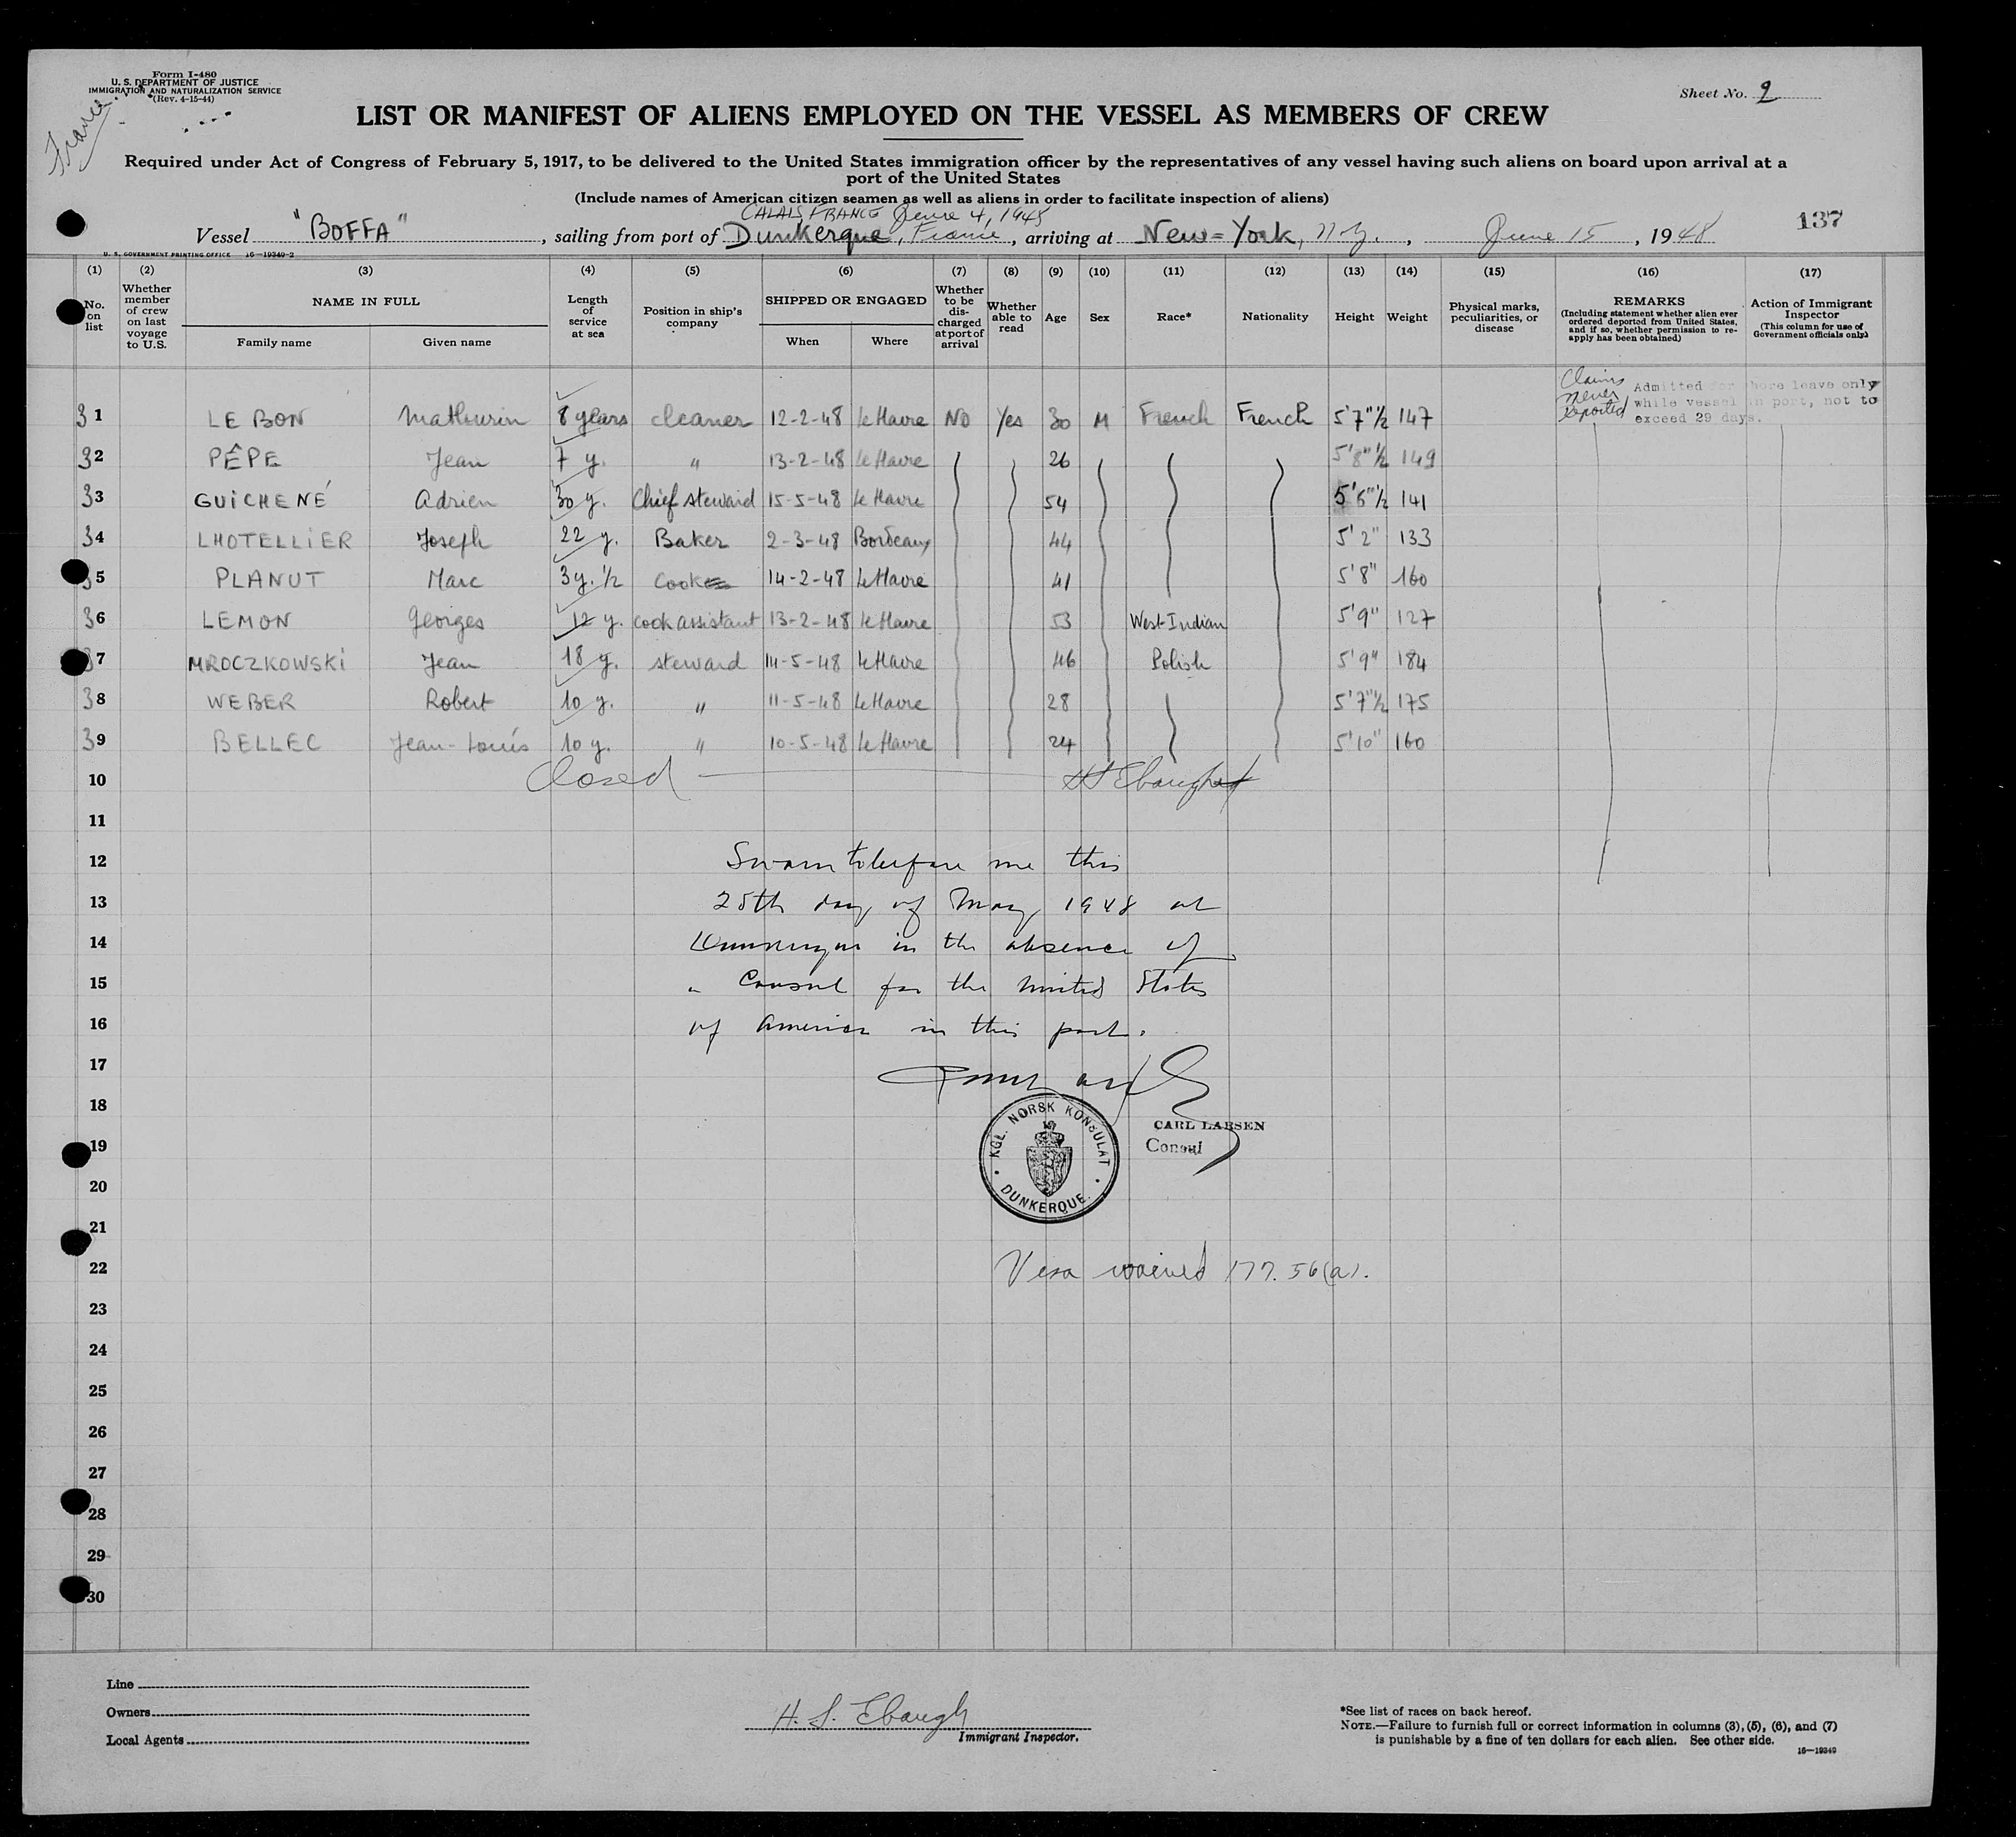 Form I-480
U. S. DEPARTMENT OF JUSTICE
IMMIGRATION AND NATURALIZATION SERVICE
(Rev. 4-15-44)
France
Sheet No. 2
LIST OR MANIFEST OF ALIENS EMPLOYED ON THE VESSEL AS MEMBERS OF CREW
Required under Act of Congress of February 5, 1917, to be delivered to the United States immigration officer by the representatives of any vessel having such aliens on board upon arrival at a
port of the United States
(Include names of American citizen seamen as well as aliens in order to facilitate inspection of aliens)
CALAIS, FRANCE June 4, 1948
Vessel "BOFFA", sailing from port of Dunkerque, France, arriving at New=York, N.Y., June 15, 1948
137
U. S. GOVERNMENT PRINTING OFFICE 16—19340-2
(1) (2) (3) (4) (5) (6) (7) (8) (9) (10) (11) (12) (13) (14) (15) (16) (17)
No. on list
Whether member of crew on last voyage to U.S.
NAME IN FULL
Family name Given name
Length of service at sea
Position in ship's company
SHIPPED OR ENGAGED
When Where
Whether to be discharged at port of arrival
Whether able to read
Age
Sex
Race*
Nationality
Height
Weight
Physical marks, peculiarities, or disease
REMARKS
(Including statement whether alien ever ordered deported from United States, and if so, whether permission to re-apply has been obtained)
Action of Immigrant Inspector
(This column for use of Government officials only)
Claims never deported
Admitted for shore leave only
while vessel in port, not to
exceed 29 days.
31 LE BON Mathurin 8 years cleaner 12-2-48 Le Havre NO Yes 30 M French French 5'7"½ 147
32 PÊPE Jean 7 y. " 13-2-48 Le Havre 26 5'8"½ 149
33 GUICHENÉ Adrien 30 y. Chief steward 15-5-48 Le Havre 54 5'6"½ 141
34 LHOTELLIER Joseph 22 y. Baker 2-3-48 Bordeaux 44 5'2" 133
35 PLANUT Marc 3 y. ½ Cook 14-2-48 Le Havre 41 5'8" 160
36 LEMON Georges 12 y. cook assistant 13-2-48 Le Havre 53 West-Indian 5'9" 127
37 MROCZKOWSKI Jean 18 y. steward 14-5-48 Le Havre 46 Polish 5'9" 184
38 WEBER Robert 10 y. " 11-5-48 Le Havre 28 5'7"½ 175
39 BELLEC Jean-Louis 10 y. " 10-5-48 Le Havre 24 5'10" 160
10 Closed H S Ebaugh
11
12 Sworn to before me this
13 25th day of May 1948 at
14 Dunkerque in the absence of
15 a Consul for the United States
16 of America in this port.
17
18
CARL LARSEN
19 Consul
KGL. NORSK KONSULAT
DUNKERQUE
20
21
22 Visa waived 177.56(a).
23
24
25
26
27
28
29
30
Line
Owners
Local Agents
H. S. Ebaugh
Immigrant Inspector.
*See list of races on back hereof.
NOTE.—Failure to furnish full or correct information in columns (3), (5), (6), and (7)
is punishable by a fine of ten dollars for each alien. See other side.
16—19340